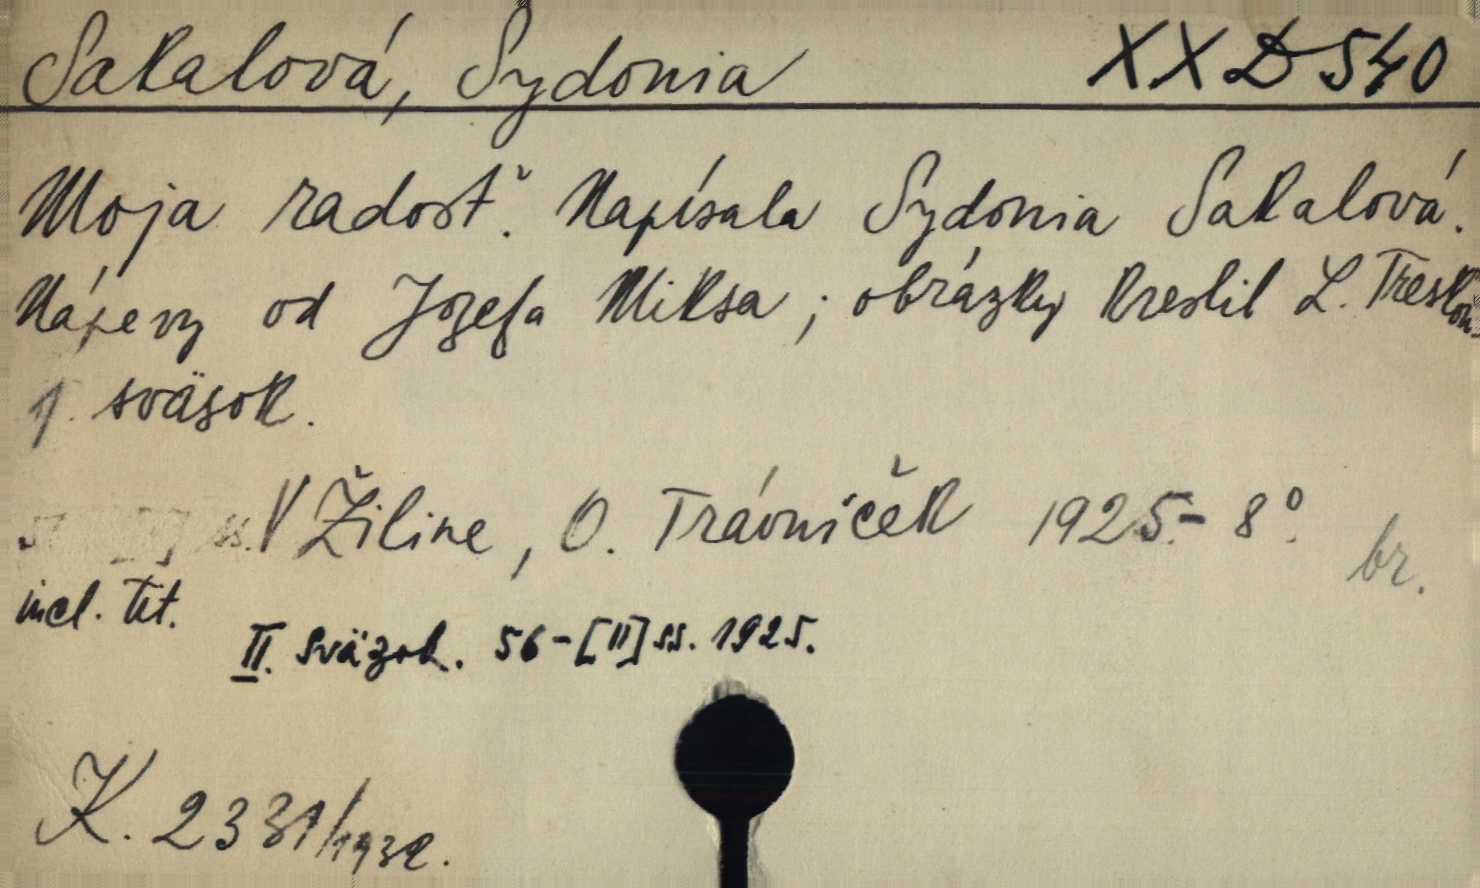 Sakalová, Sydonia XX D 540
Moja radosť. Napísala Sydonia Sakalová.
Nápevy od Jozefa Miksa; obrázky kreslil L. Treskoň.
1. sväsok.
V Žiline, O. Trávníček 1925.- 8°. br.
incl. tit.
II. sväzok. 56-[II] ss. 1925.
K. 2331/1932.